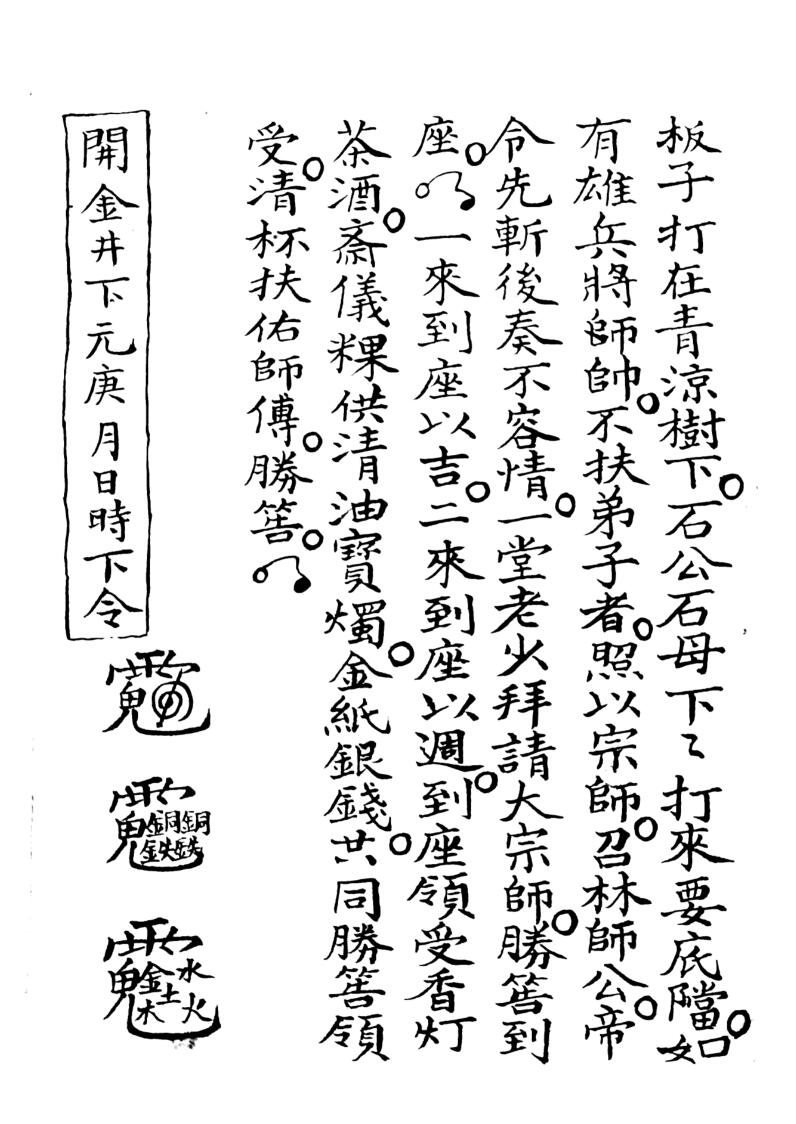 板子打在青涼樹下。石公石母下〻打來要底擋。如
有雄兵將師帥。不扶弟子者。照以宗師。召林師公。帝
令先斬後奏不容情。一堂老少拜請大宗師。勝筶到
座。一來到座以吉。二來到座以週。到座領受香灯
茶酒。斎儀粿供清油寶燭。金紙銀錢。共同勝筶領
受。清杯扶佑師傅。勝筶。
開金井下元庚月日時下令
銅銅鉄鉄
金木水火土